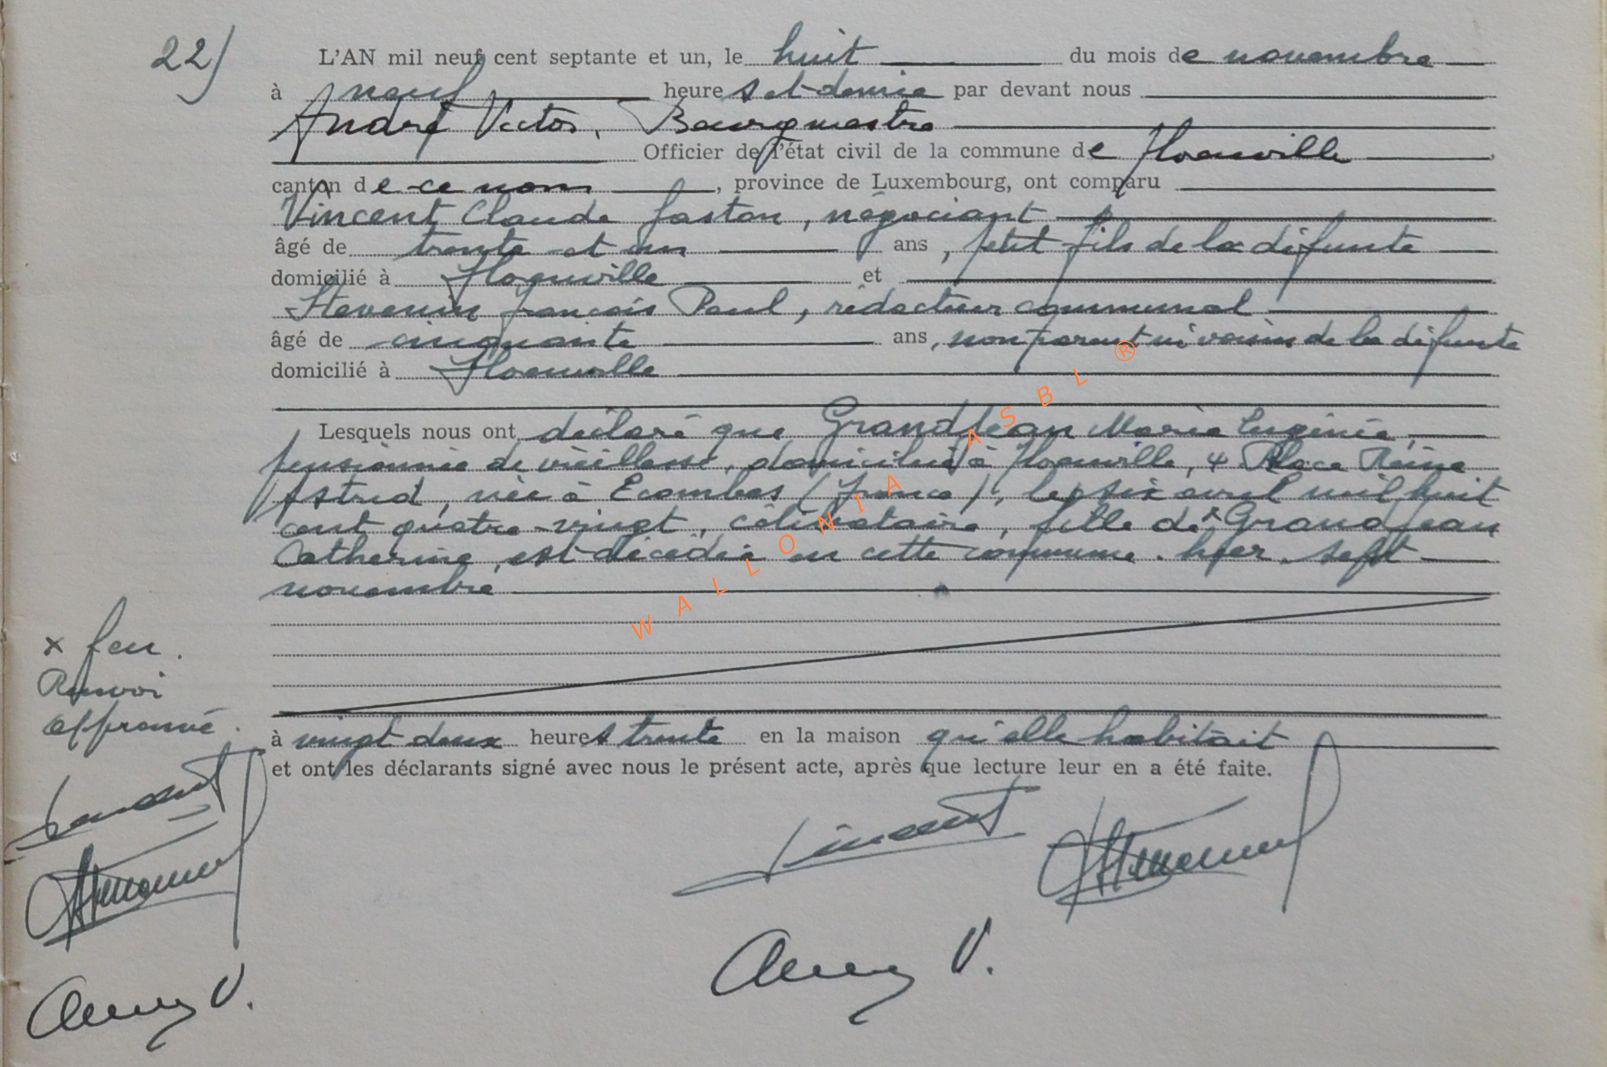 22) L'AN mil neuf cent septante et un, le huit du mois de novembre
à neuf heures et demie par devant nous
André Victor, Bourgmestre
Officier de l'état civil de la commune de Florenville
canton de ce nom, province de Luxembourg, ont comparu
Vincent Claude Gaston, négociant
âgé de trente et un ans, petit fils de la défunte
domicilié à Florenville et
Stevenin François Paul, rédacteur communal
âgé de cinquante ans, non parent ni voisin de la défunte
domicilié à Florenville
Lesquels nous ont déclaré que GrandJean Marie Eugénie,
pensionnée de vieillesse, domiciliée à Florenville, 4 Place Reine
Astrid, née à Escombres (France), le six avril mil huit
cent quatre-vingt, célibataire, fille de x GrandJean
Catherine, est décédée en cette commune. hier, sept
novembre
x feu.
Renvoi
approuvé.
à vingt deux heures trente en la maison qu'elle habitait
et ont les déclarants signé avec nous le présent acte, après que lecture leur en a été faite.
Vincent
Vincent
WALLONIA ASBL ®